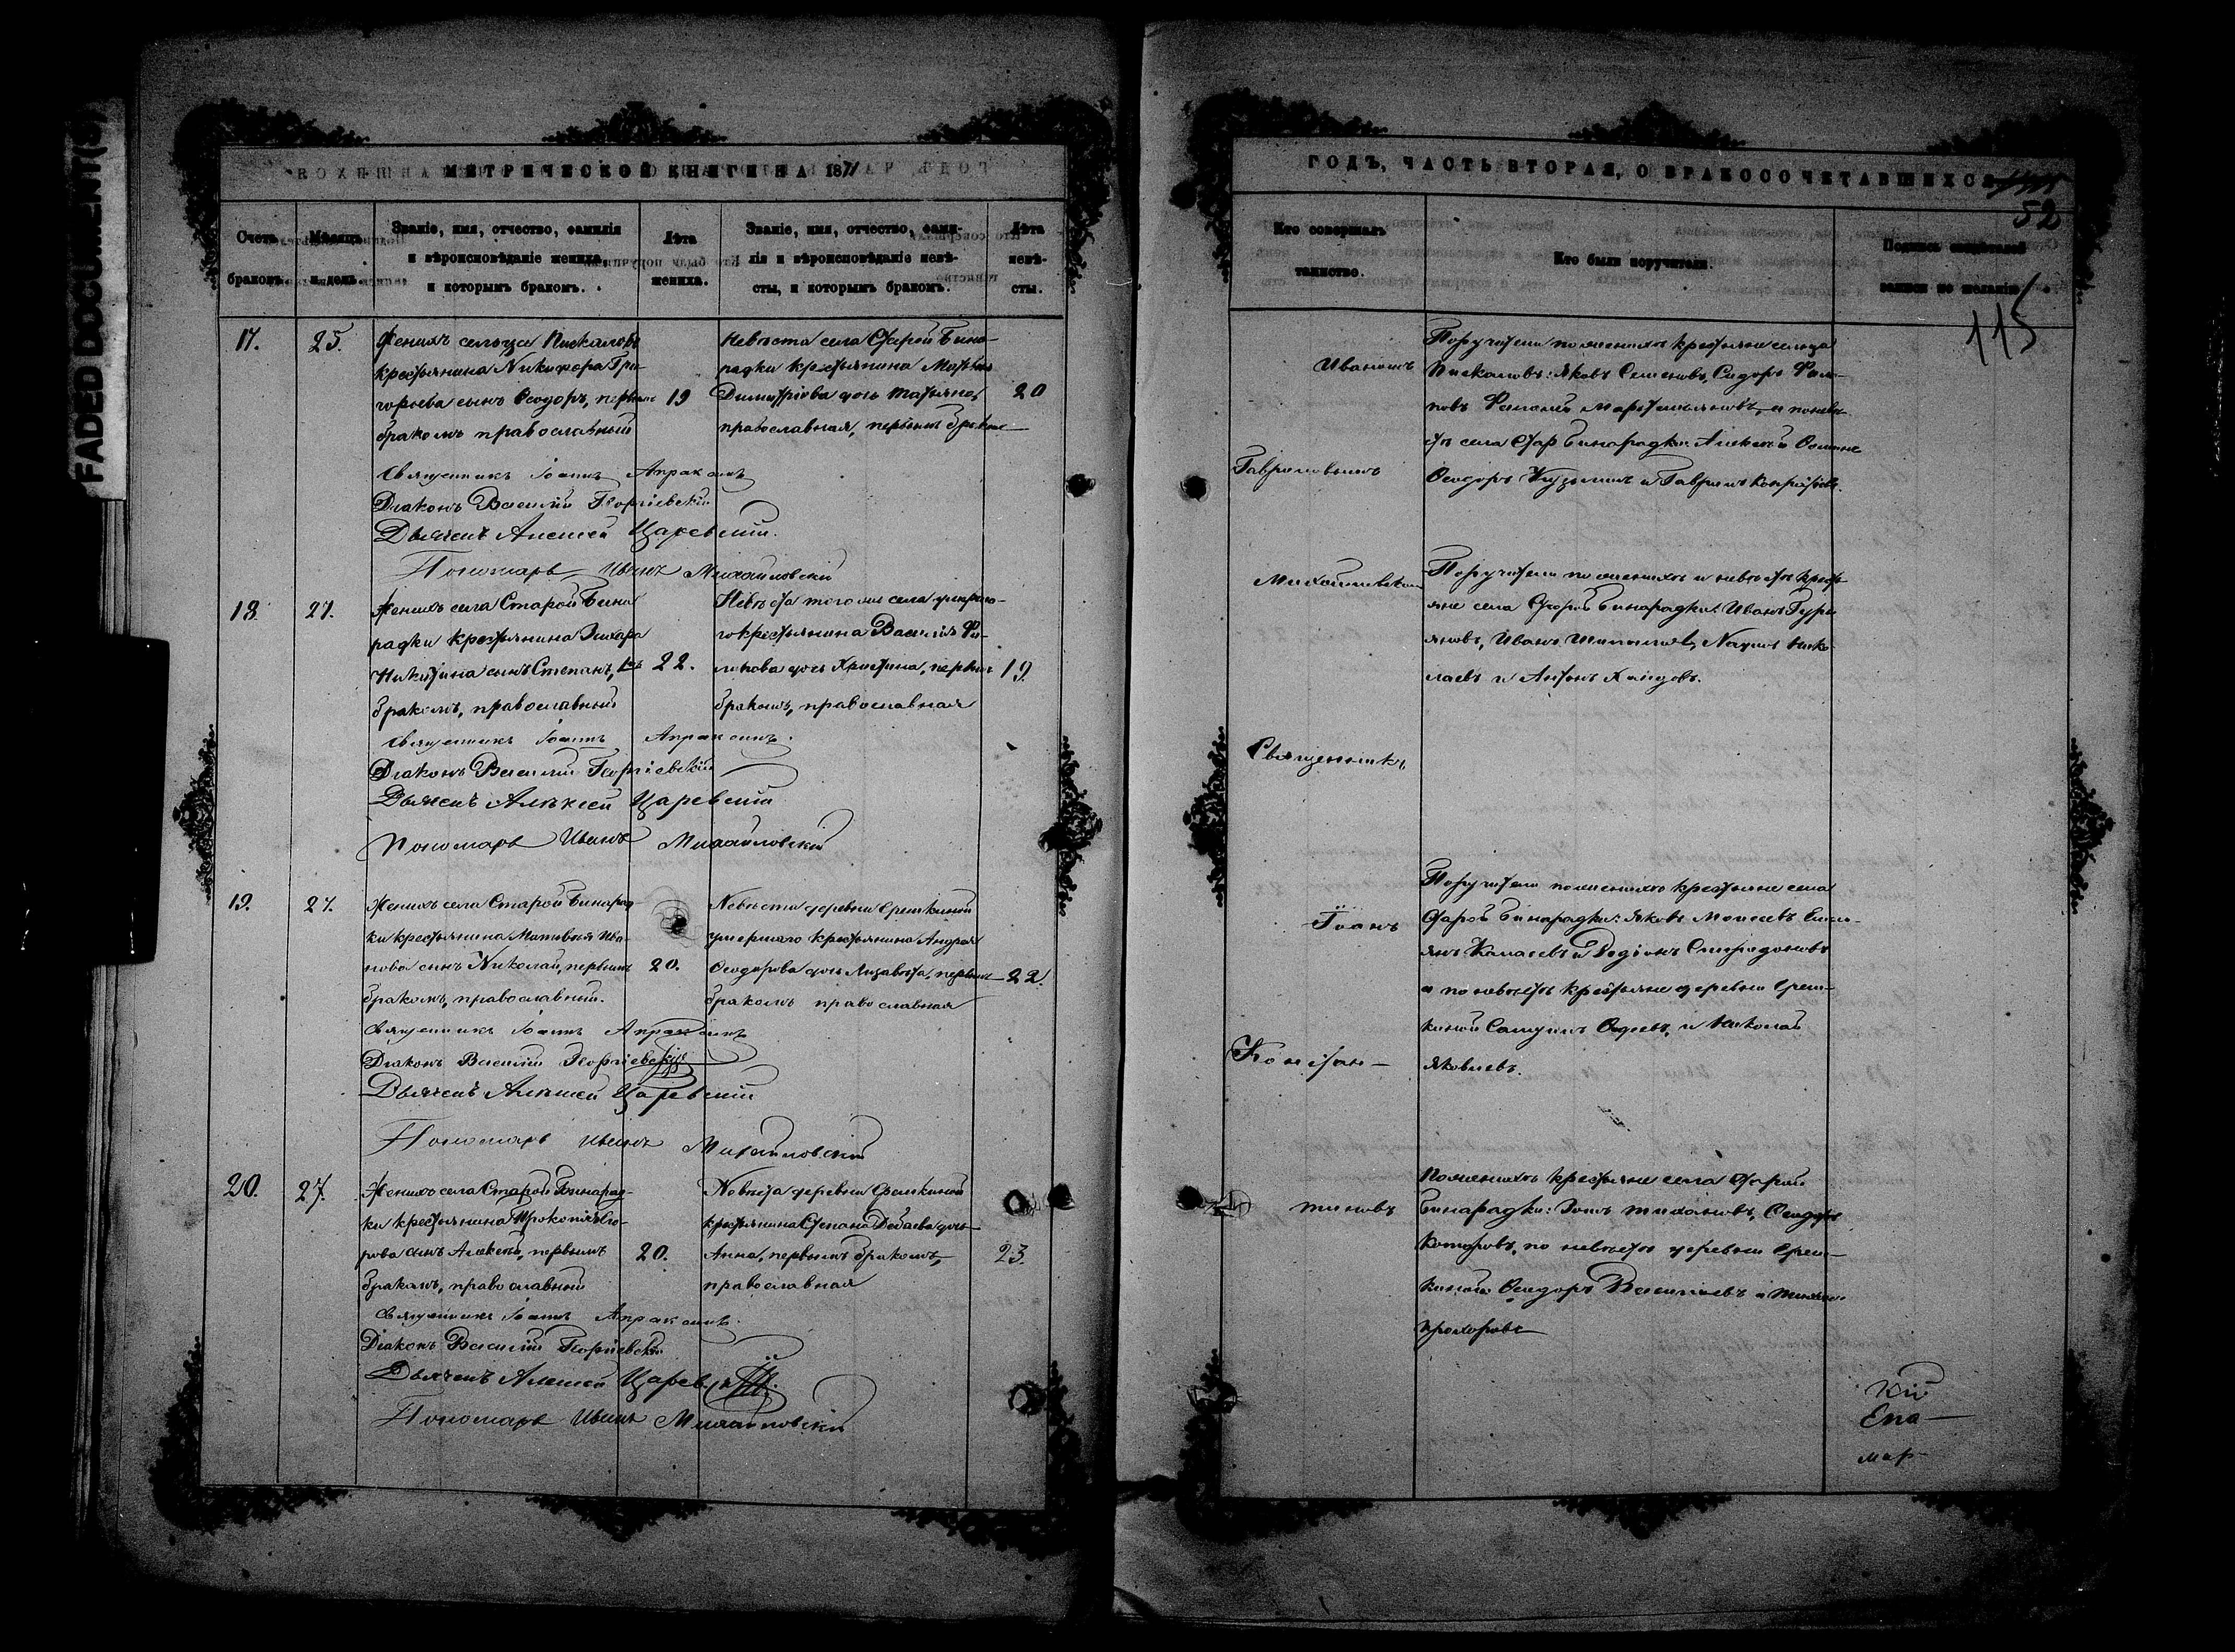 FADED DOCUMENT(S)
МЕТРИЧЕСКОЙ КНИГИ НА 1871
Счетъ браковъ.
Мѣсяцъ и день.
Званіе, имя, отчество, фамилія
и вѣроисповѣданіе жениха,
и которымъ бракомъ.
Лѣта
жениха.
Званіе, имя, отчество, фами-
лія и вѣроисповѣданіе невѣ-
сты, и которымъ бракомъ.
Лѣта
невѣ-
сты.
17.
25.
Женихъ сельца Пискаловъ
крестьянина Никифора Гри-
горьева сынъ Ѳеодоръ, первымъ
бракомъ православный
19
Невѣста села Старой Бина-
радки крестьянина Матвѣя
Димитріева дочь Татьяна,
православная, первымъ бракомъ
20
Священникъ Іоаннъ Апраксинъ
Діаконъ Василій Георгіевскій
Дьячекъ Алексей Царевскій.
Пономарь Иванъ Михайловскій
18.
27.
Женихъ села Старой Бина
радки крестьянина Захара
Никитина сынъ Степанъ, 1мъ
бракомъ, православный
22.
Невѣста того же села умерша-
го крестьянина Василія Фи-
липова дочь Христина, первымъ
бракомъ, православная
19.
Священникъ Іоаннъ Апраксинъ.
Діаконъ Василій Георгіевскій
Дьячекъ Алексей Царевскій
Пономарь Иванъ Михайловскій
19.
27.
Женихъ села Старой Бинарад
ки крестьянина Матвѣя Ива-
нова сынъ Николай, первымъ
бракомъ, православный.
20.
Невѣста деревни Еремкиной
умершаго крестьянина Андрея
Ѳеодорова дочь Лизавета, первымъ
бракомъ православная
22.
Священникъ Іоаннъ Апраксинъ
Діаконъ Василій Георгіевскій
Дьячекъ Алексей Царевскій
Пономарь Иванъ Михайловскій
20.
27.
Женихъ села Старой Бинарад-
ки крестьянина Прокопія Его-
рова сынъ Алексей, первымъ
бракомъ, православный
20.
Невѣста деревни Еремкиной
крестьянина Степана Дебаева дочь
Анна, первымъ бракомъ,
православная
23.
Священникъ Іоаннъ Апраксинъ.
Діаконъ Василій Георгіевскій
Дьячекъ Алексей Царевскій.
Пономарь Иванъ Михайловскій
ГОДЪ, ЧАСТЬ ВТОРАЯ, О БРАКОСОЧЕТАВШИХСЯ
52
Кто совершалъ
таинство.
Кто были поручители.
Подпись свидѣтелей
записи по желанію.
115
Ивановъ
Гавриловымъ
Михайловскимъ
Священникъ
Іоанъ
Констан-
тиновъ
Поручители по женихѣ крестьяне сельца
Пискаловъ: Яковъ Семеновъ, Сидоръ Фили-
повъ, а по невѣ-
стѣ села Стар Бинарадки: Алексей
Ѳеодоръ Кузьминъ и Гаврилъ
Поручители по женихѣ и невѣстѣ кресть
яне села Старой Бинарадки: Иванъ Гурь
яновъ, Иванъ Шипиловъ, Наумъ Нико-
лаевъ и Антонъ
Поручители по женихѣ крестьяне села
Старой Бинарадки: Яковъ Моисеевъ
и Родіонъ Спиридоновъ
а по невѣстѣ крестьяне деревни Ерем-
киной и Николай
Яковлевъ.
По женихѣ крестьяне села Старой
Бинарадки: Ѳеодоръ
по невѣстѣ деревни Ерем-
киной Ѳеодоръ Васильевъ и
Прохоровъ
кій
Епа-
мар-